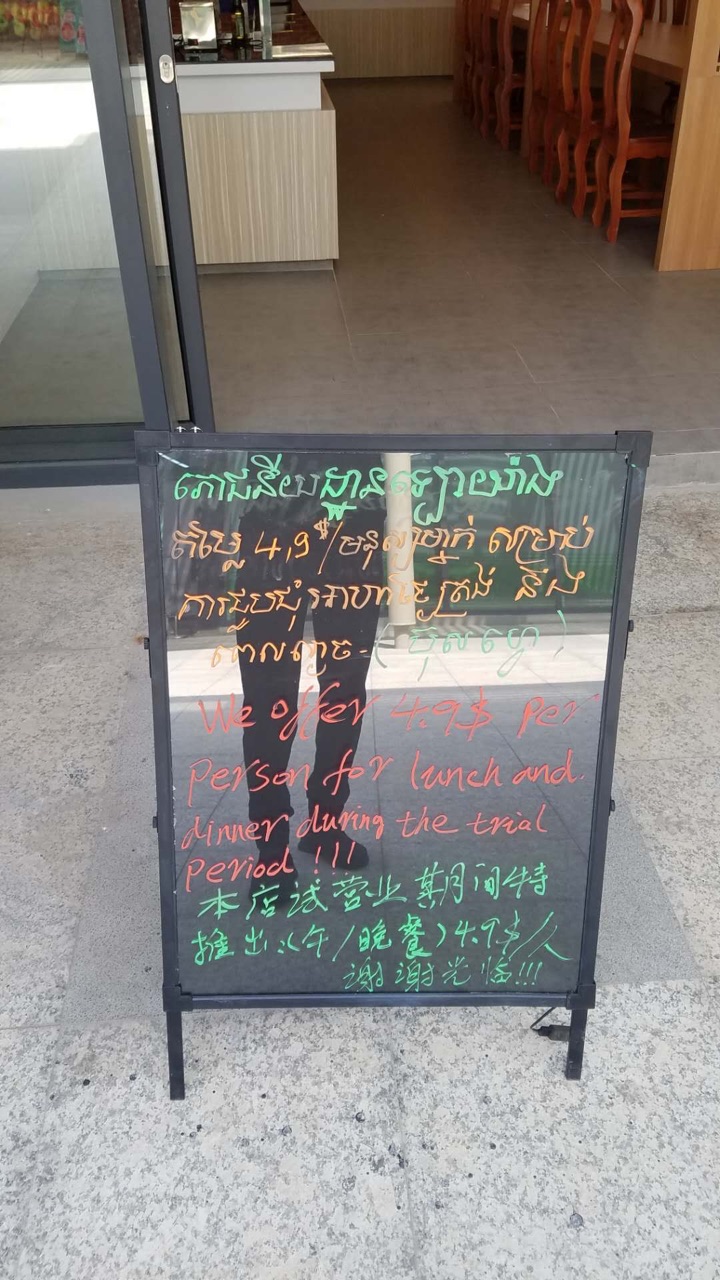 ភោជនីយដ្ឋាន
តម្លៃ 4,9$/មនុស្សម្នាក់ សម្រាប់
ការជួបជុំអាហារថ្ងៃត្រង់ និង
ពេលល្ងាច-(ប៊ុសហ្វេ)
We offer 4.9$ per
person for lunch and
dinner during the trial
period !!!
本店试营业期间特
推出:(午/晚餐)4.9$/人
谢谢光临!!!